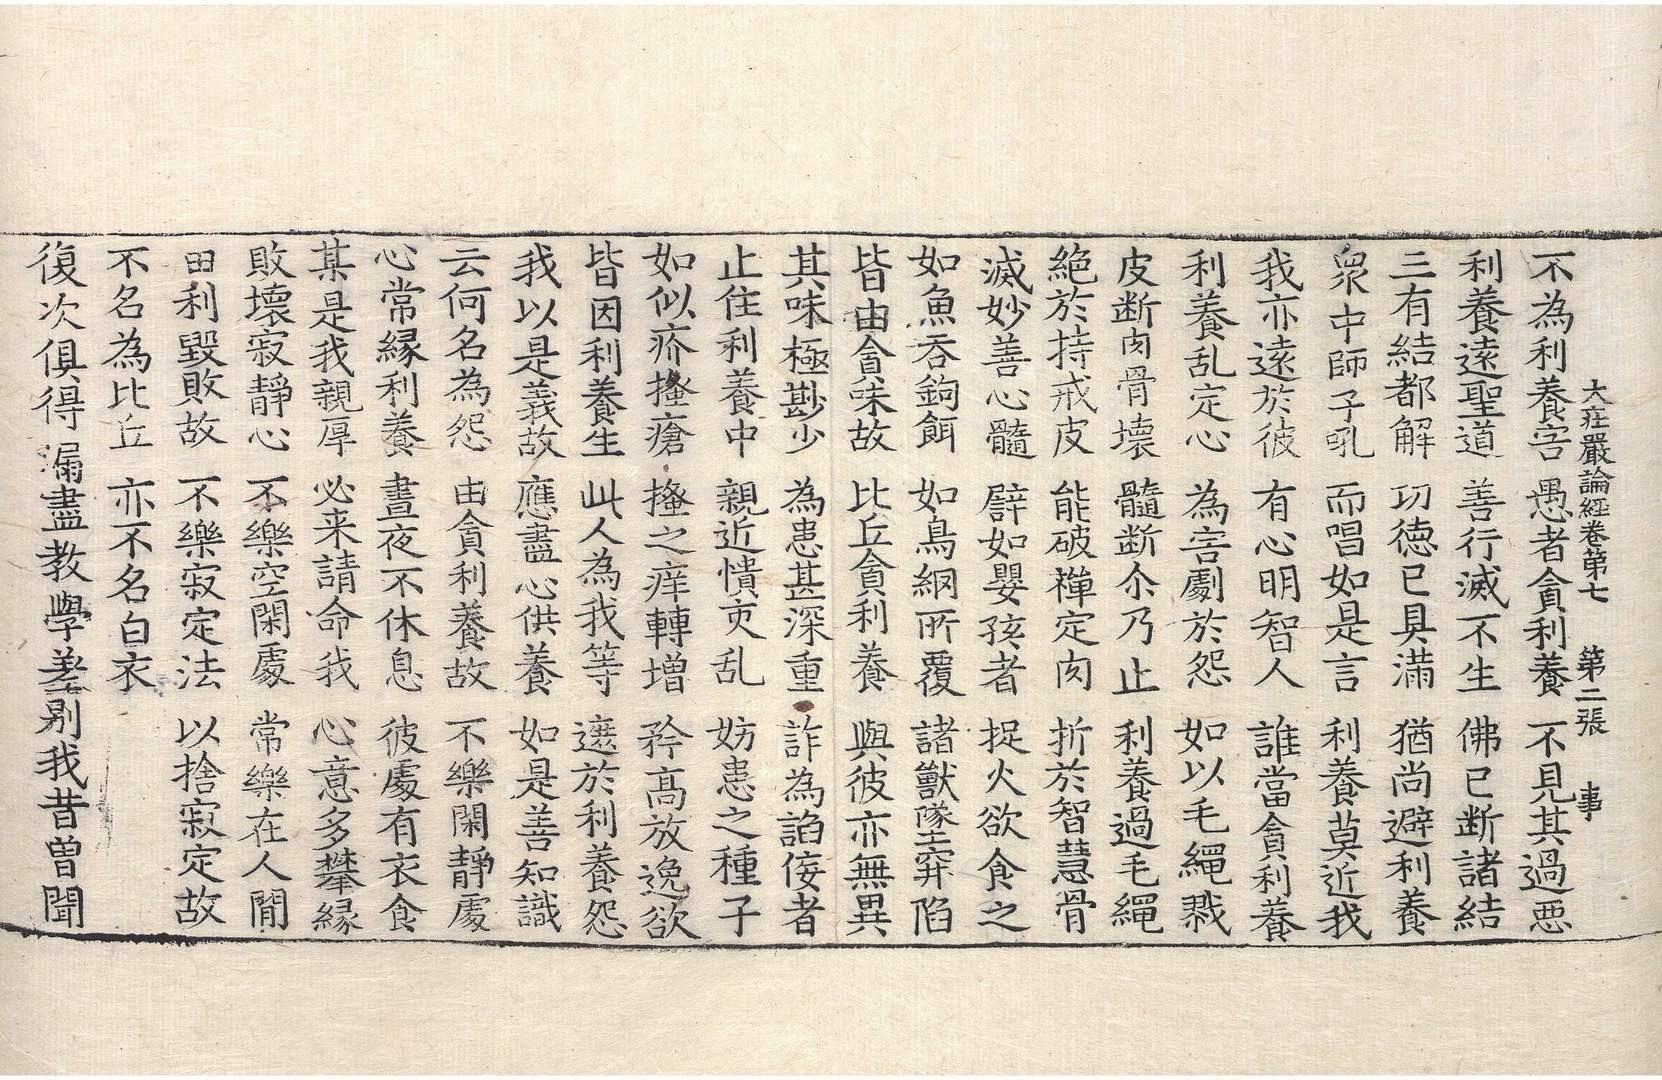 大庄嚴論經卷第七 第二張 事
不為利養害 愚者貪利養 不見其過惡
利養遠聖道 善行滅不生 佛已断諸結
三有結都解 功德已具滿 猶尚避利養
衆中師子吼 而唱如是言 利養莫近我
我亦遠於彼 有心明智人 誰當貪利養
利養乱定心 為害劇於怨 如以毛繩戮
皮断肉骨壊 髓断尒乃止 利養過毛繩
絕於持戒皮 能破禪定肉 折於智慧骨
滅妙善心髓 譬如嬰孩者 捉火欲食之
如魚吞鉤餌 如鳥網所覆 諸獸墜穽陷
皆由貪味故 比丘貪利養 與彼亦無異
其味極尠少 為患甚深重 詐為諂侫者
止住利養中 親近憒閙乱 妨患之種子
如似疥搔瘡 搔之痒轉增 矜高放逸欲
皆因利養生 此人為我等 遮於利養怨
我以是義故 應盡心供養 如是善知識
云何名為怨 由貪利養故 不樂閑靜處
心常緣利養 晝夜不休息 彼處有衣食
某是我親厚 必来請命我 心意多攀緣
敗壞寂靜心 不樂空閑處 常樂在人間
田利毀敗故 不樂寂定法 以捨寂定故
不名為比丘 亦不名白衣
復次俱得漏盡教學差别我昔曾聞